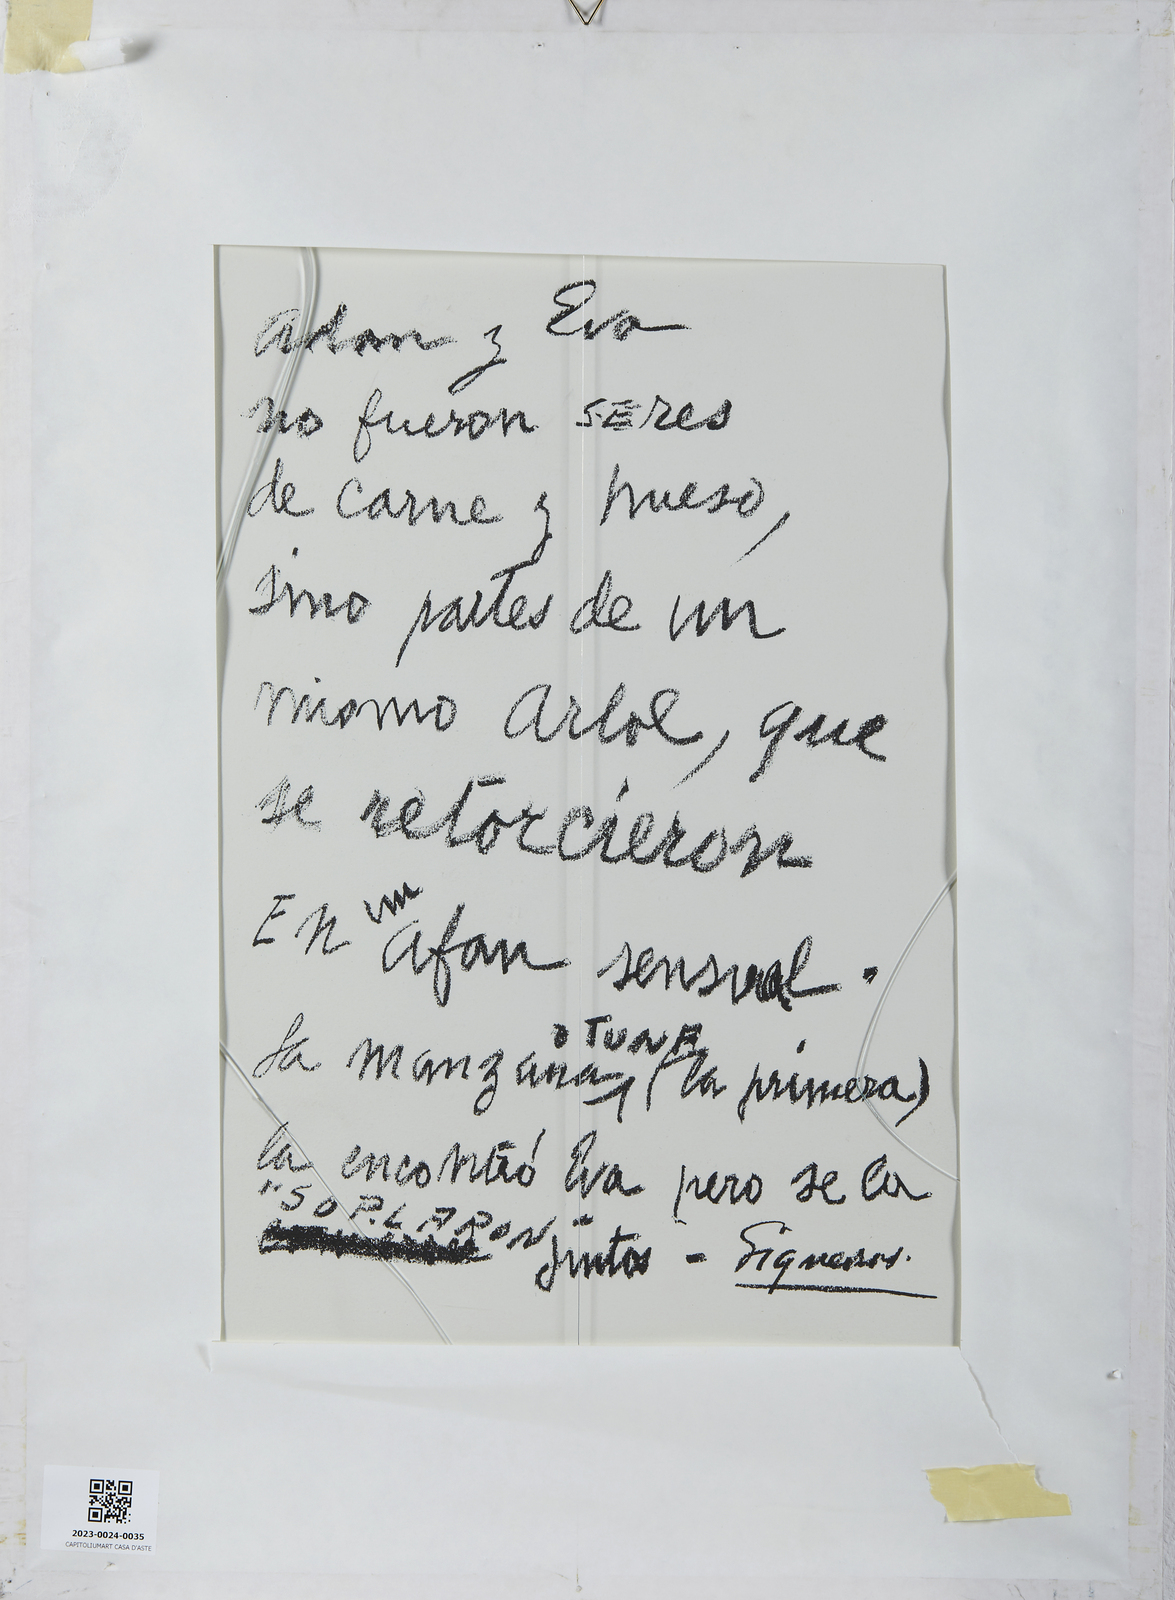 Adan y Eva
no fueron SEres
de carne y hueso,
sino partes de un
mismo arbol, que
se retorcieron
En un afan sensual.
La manzana o TUNA, (la primera)
la encontró Eva pero se la
"SOPLARON" juntos - Siqueiros.
2023-0024-0035
CAPITOLIUMART CASA D'ASTE